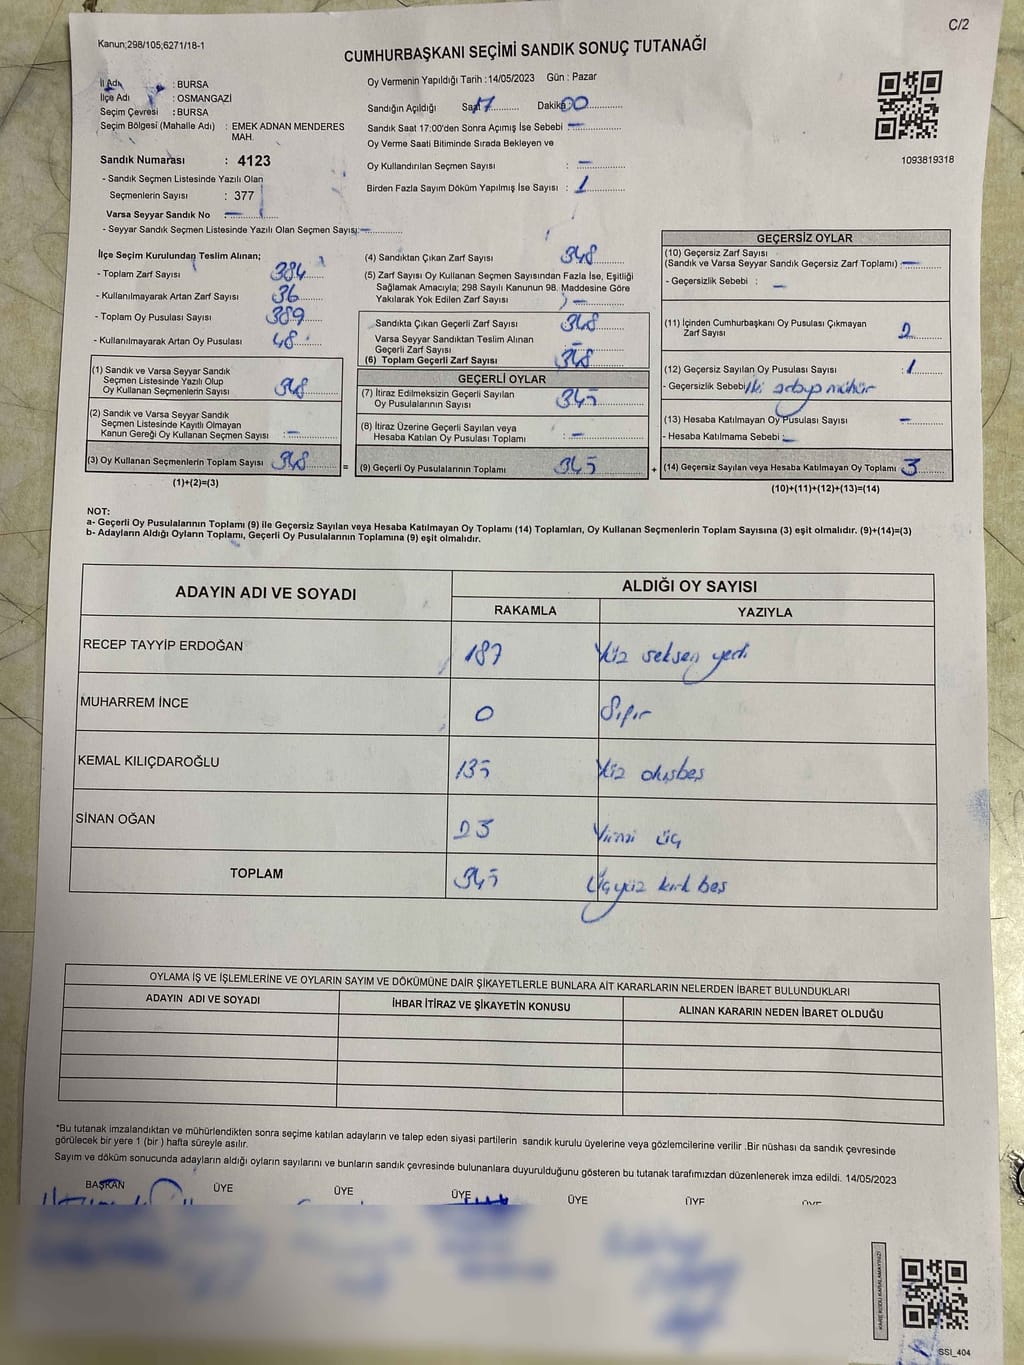 C/2
Kanun;298/105;6271/18-1
CUMHURBAŞKANI SEÇİMİ SANDIK SONUÇ TUTANAĞI
İl Adı : BURSA
İlçe Adı : OSMANGAZİ
Seçim Çevresi : BURSA
Seçim Bölgesi (Mahalle Adı) : EMEK ADNAN MENDERES MAH.
Sandık Numarası : 4123
- Sandık Seçmen Listesinde Yazılı Olan
Seçmenlerin Sayısı : 377
Varsa Seyyar Sandık No –
- Seyyar Sandık Seçmen Listesinde Yazılı Olan Seçmen Sayısı: –
Oy Vermenin Yapıldığı Tarih :14/05/2023 Gün : Pazar
Sandığın Açıldığı Saat 17 Dakika 00
Sandık Saat 17:00'den Sonra Açımış İse Sebebi –
Oy Verme Saati Bitiminde Sırada Bekleyen ve
Oy Kullandırılan Seçmen Sayısı : –
Birden Fazla Sayım Döküm Yapılmış İse Sayısı : 1
1093819318
İlçe Seçim Kurulundan Teslim Alınan;
- Toplam Zarf Sayısı 384
- Kullanılmayarak Artan Zarf Sayısı 36
- Toplam Oy Pusulası Sayısı 389
- Kullanılmayarak Artan Oy Pusulası 48
(1) Sandık ve Varsa Seyyar Sandık
Seçmen Listesinde Yazılı Olup
Oy Kullanan Seçmenlerin Sayısı 348
(2) Sandık ve Varsa Seyyar Sandık
Seçmen Listesinde Kayıtlı Olmayan
Kanun Gereği Oy Kullanan Seçmen Sayısı : –
(3) Oy Kullanan Seçmenlerin Toplam Sayısı 348
(1)+(2)=(3)
(4) Sandıktan Çıkan Zarf Sayısı 348
(5) Zarf Sayısı Oy Kullanan Seçmen Sayısından Fazla İse, Eşitliği
Sağlamak Amacıyla; 298 Sayılı Kanunun 98. Maddesine Göre
Yakılarak Yok Edilen Zarf Sayısı –
Sandıkta Çıkan Geçerli Zarf Sayısı 348
Varsa Seyyar Sandıktan Teslim Alınan
Geçerli Zarf Sayısı –
(6) Toplam Geçerli Zarf Sayısı 348
GEÇERLİ OYLAR
(7) İtiraz Edilmeksizin Geçerli Sayılan
Oy Pusulalarının Sayısı 345
(8) İtiraz Üzerine Geçerli Sayılan veya
Hesaba Katılan Oy Pusulası Toplamı : –
= (9) Geçerli Oy Pusulalarının Toplamı 345 +
GEÇERSİZ OYLAR
(10) Geçersiz Zarf Sayısı
(Sandık ve Varsa Seyyar Sandık Geçersiz Zarf Toplamı) –
- Geçersizlik Sebebi : –
(11) İçinden Cumhurbaşkanı Oy Pusulası Çıkmayan
Zarf Sayısı 2
(12) Geçersiz Sayılan Oy Pusulası Sayısı : 1
- Geçersizlik Sebebi İki mühür
(13) Hesaba Katılmayan Oy Pusulası Sayısı –
- Hesaba Katılmama Sebebi : –
(14) Geçersiz Sayılan veya Hesaba Katılmayan Oy Toplamı 3
(10)+(11)+(12)+(13)=(14)
NOT:
a- Geçerli Oy Pusulalarının Toplamı (9) ile Geçersiz Sayılan veya Hesaba Katılmayan Oy Toplamı (14) Toplamları, Oy Kullanan Seçmenlerin Toplam Sayısına (3) eşit olmalıdır. (9)+(14)=(3)
b- Adayların Aldığı Oyların Toplamı, Geçerli Oy Pusulalarının Toplamına (9) eşit olmalıdır.
ADAYIN ADI VE SOYADI ALDIĞI OY SAYISI
RAKAMLA YAZIYLA
RECEP TAYYİP ERDOĞAN 187 Yüz seksen yedi
MUHARREM İNCE 0 Sıfır
KEMAL KILIÇDAROĞLU 135 Yüz otuzbeş
SİNAN OĞAN 23 Yirmi üç
TOPLAM 345 Üçyüz kırk beş
OYLAMA İŞ VE İŞLEMLERİNE VE OYLARIN SAYIM VE DÖKÜMÜNE DAİR ŞİKAYETLERLE BUNLARA AİT KARARLARIN NELERDEN İBARET BULUNDUKLARI
ADAYIN ADI VE SOYADI İHBAR İTİRAZ VE ŞİKAYETİN KONUSU ALINAN KARARIN NEDEN İBARET OLDUĞU
*Bu tutanak imzalandıktan ve mühürlendikten sonra seçime katılan adayların ve talep eden siyasi partilerin sandık kurulu üyelerine veya gözlemcilerine verilir .Bir nüshası da sandık çevresinde
görülecek bir yere 1 (bir ) hafta süreyle asılır.
Sayım ve döküm sonucunda adayların aldığı oyların sayılarını ve bunların sandık çevresinde bulunanlara duyurulduğunu gösteren bu tutanak tarafımızdan düzenlenerek imza edildi. 14/05/2023
BAŞKAN ÜYE ÜYE ÜYE ÜYE ÜYE ÜYE
KARE KODU KARALAMAYINIZ!
SSI_404